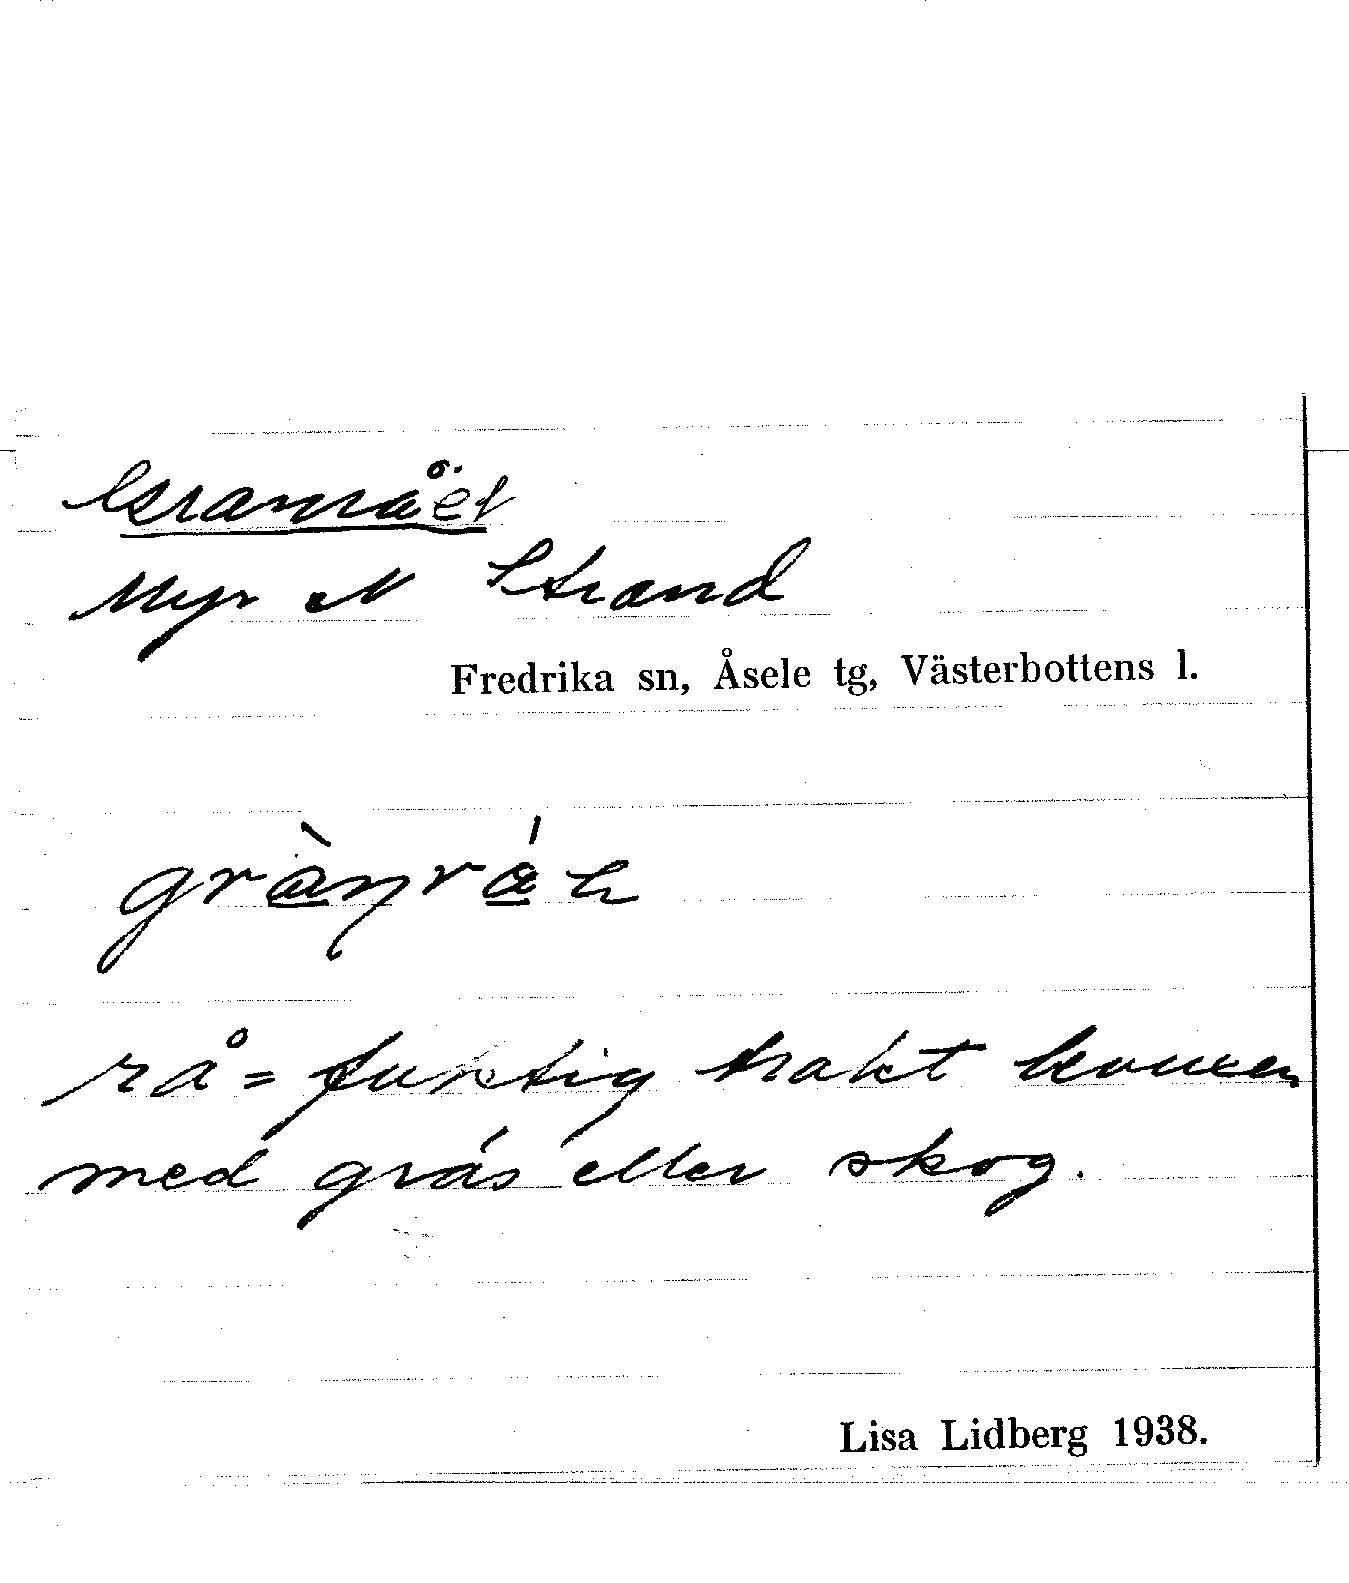 Granrået
Myr N Strand
Fredrika sn, Åsele tg, Västerbottens l.
rå = fuktig trakt
med gräs eller skog.
Lisa Lidberg 1938.